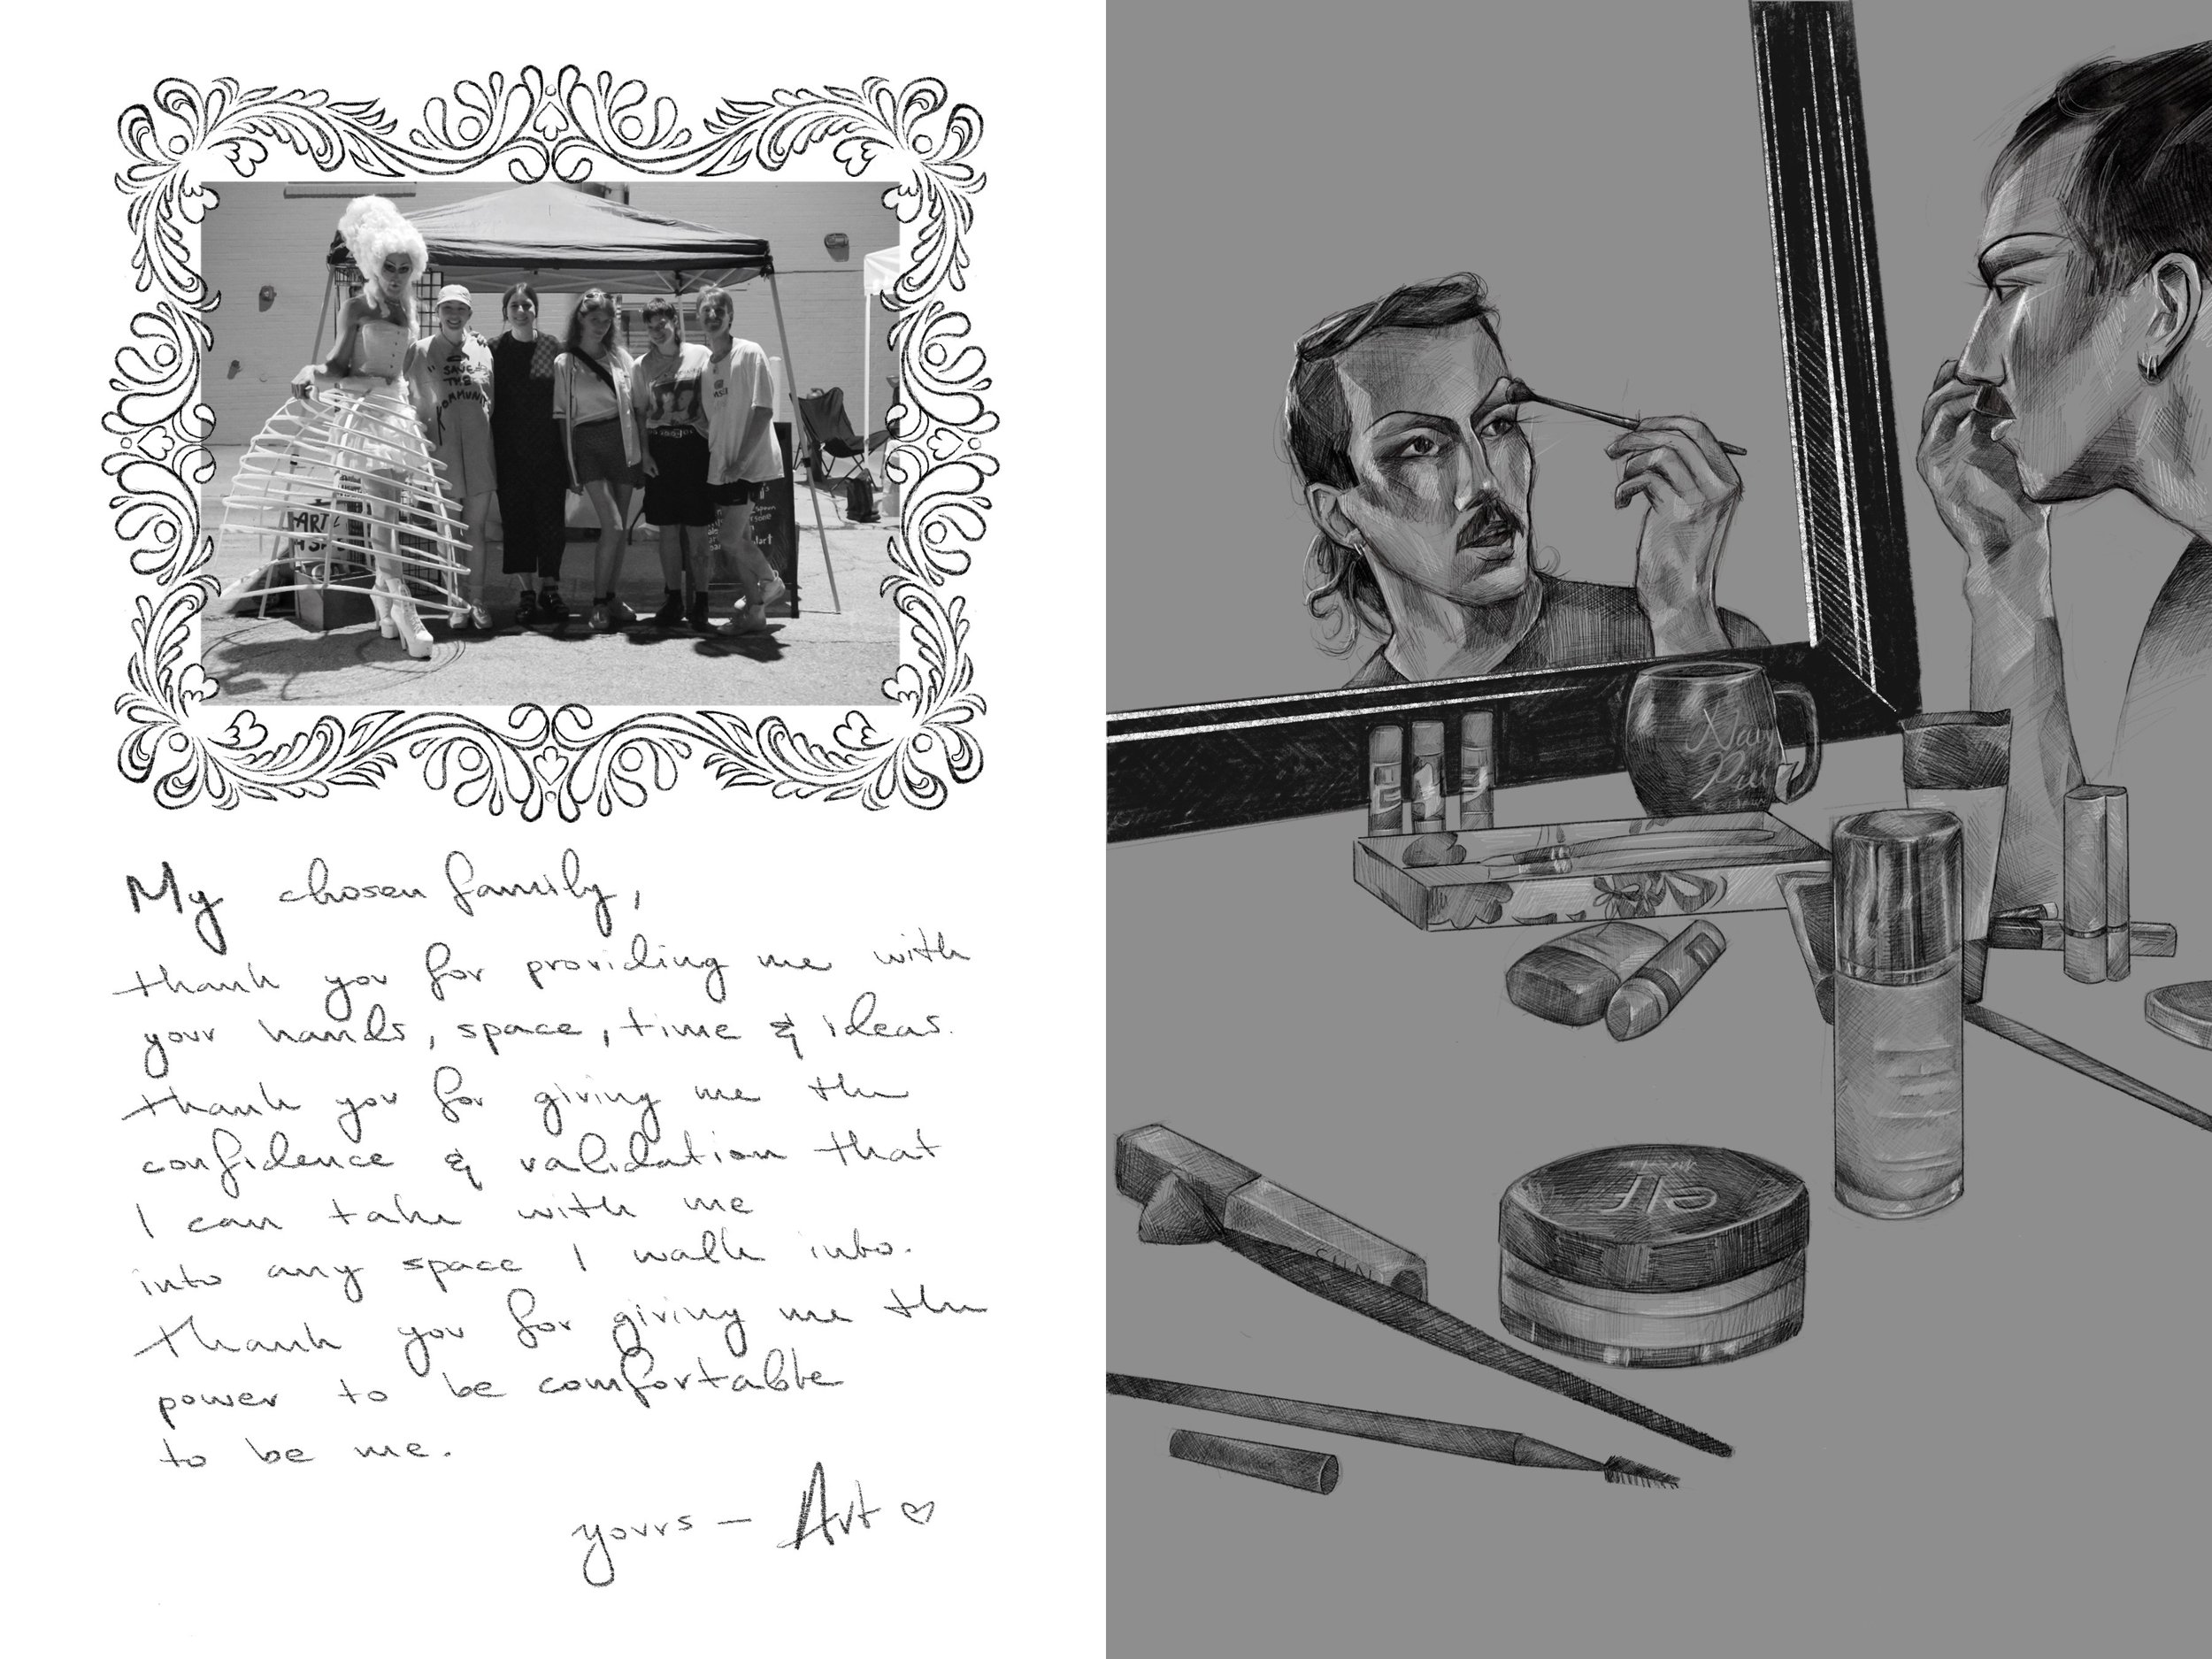 "SAVED
THE
ART
My chosen family,
thank you for providing me with
your hands, space, time & ideas.
thank you for giving me the
confidence & validation that
I can take with me
into any space I walk into.
thank you for giving me the
power to be comfortable
to be me.
yours — Art ♡
2 1 3
elf